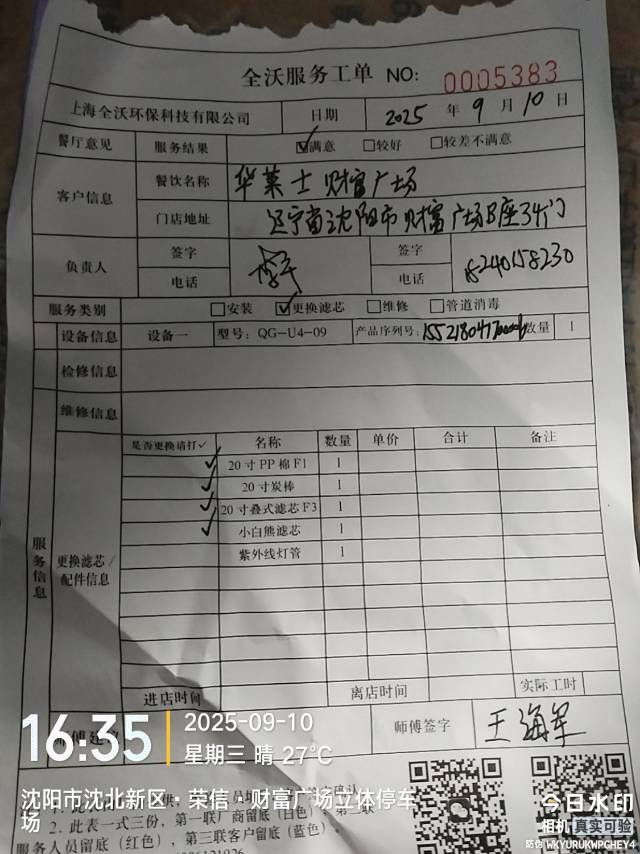 全沃服务工单 NO: 0005383
上海全沃环保科技有限公司 日期 2025 年 9 月 10 日
餐厅意见 服务结果 ☑满意 □较好 □较差不满意
客户信息 餐饮名称 华莱士 财富广场
门店地址 辽宁省沈阳市财富广场B座
负责人 签字 签字
电话 电话 15240158230
服务类别 □安装 ☑更换滤芯 □维修 □管道消毒
设备信息 设备一 型号: QG-U4-09 产品序列号: 数量 1
检修信息
维修信息
服务信息
更换滤芯/配件信息
是否更换请打✓ 名称 数量 单价 合计 备注
✓ 20寸PP棉F1 1
✓ 20寸炭棒 1
✓ 20寸叠式滤芯F3 1
✓ 小白熊滤芯 1
紫外线灯管 1
进店时间 离店时间 实际工时
师傅签字 王海军
16:35 2025-09-10
星期三 晴 27℃
沈阳市沈北新区·荣信·财富广场立体停车场
2. 此表一式三份，第一联厂商留底（白色），第二联
服务人员留底（红色），第三联客户留底（蓝色）
今日水印
相机 真实可验
防伪 WKYURUKWPGHEY4